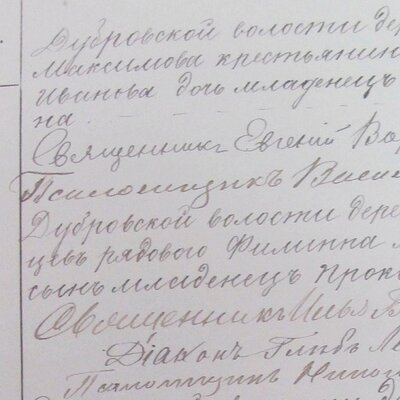 Дубровской волости дер
Максимова крестьянин
Иванова дочь младенецъ
на
Священникъ Евгеній Ва
Псаломщикъ Васи
Дубровской волости дере
цевъ рядового Филиппа
сынъ младенецъ Проко
Священникъ Илья
Діаконъ Глебъ Ле
Псаломщикъ Никол